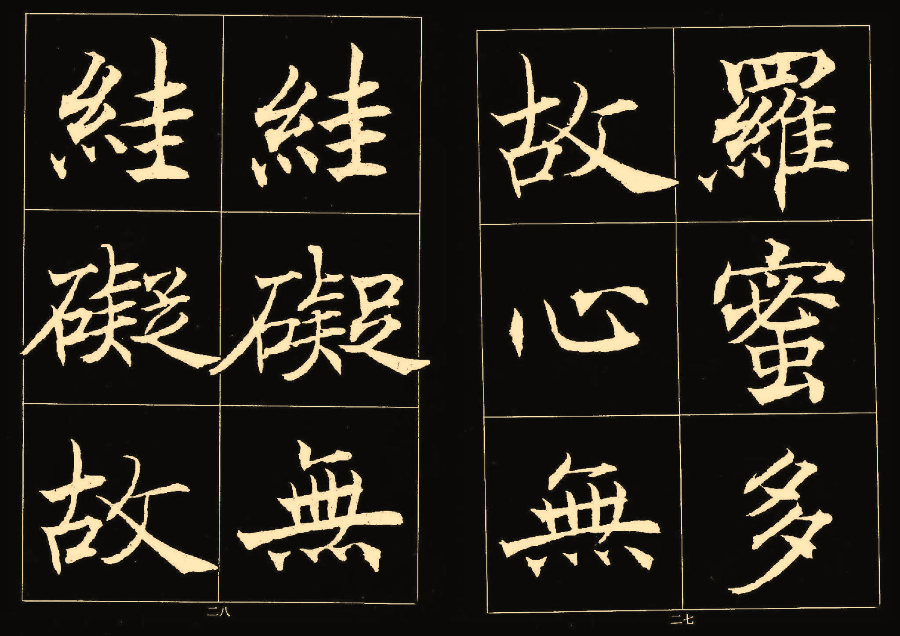 羅蜜多
故心無
絓礙無
絓礙故
二七
二八